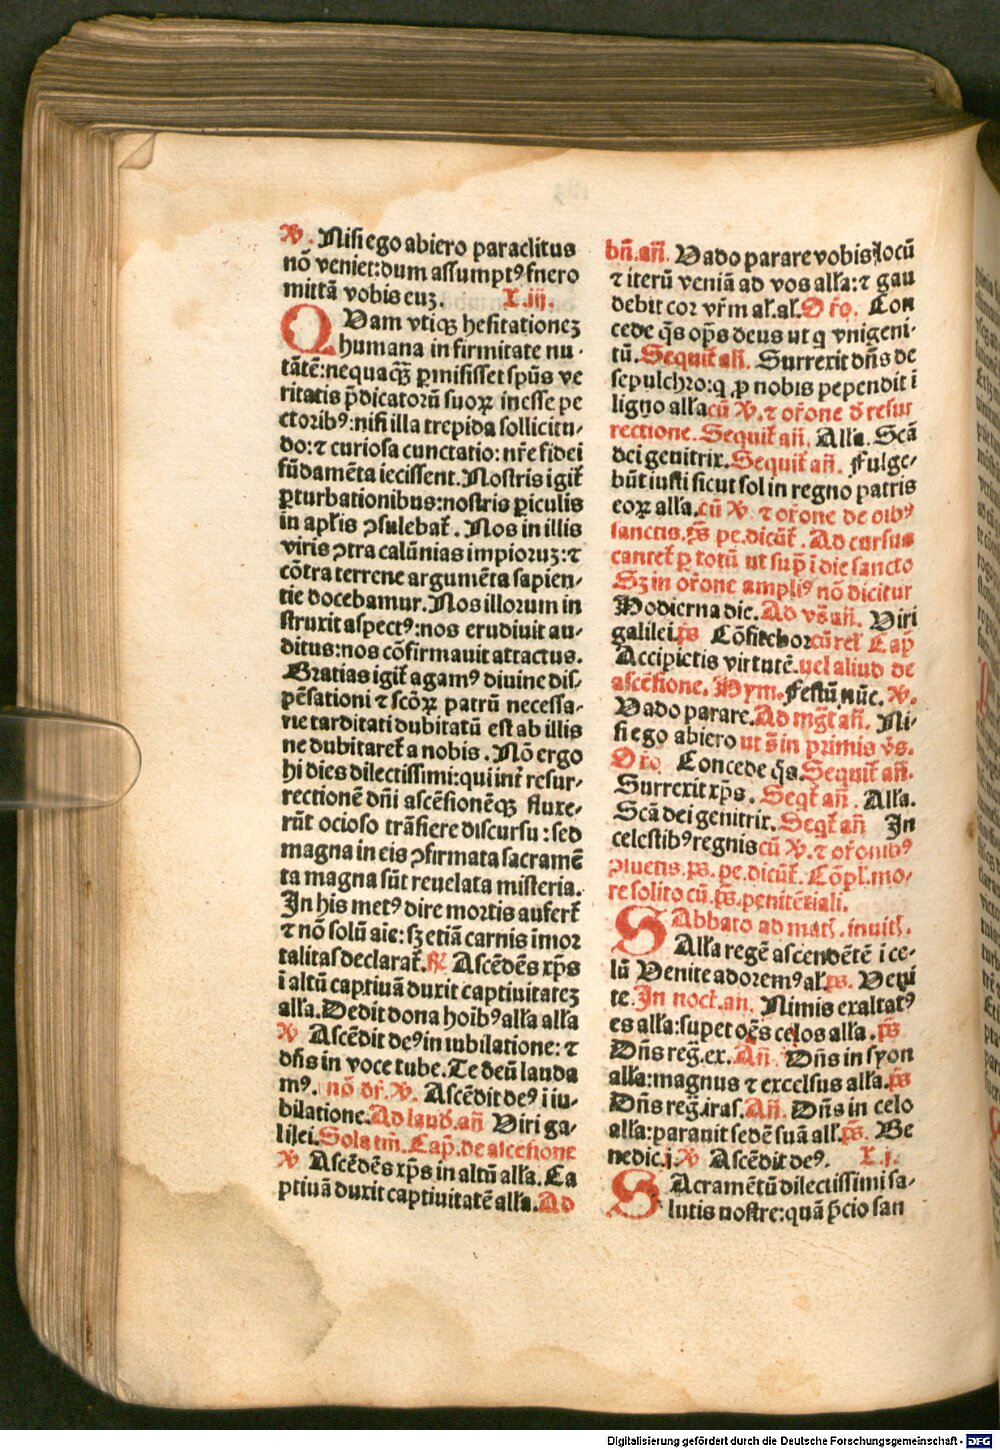 ℣. Nisi ego abiero paraclitus
nō veniet:dum assumptꝰ fuero
mittā vobis euʒ. L.iij.
QVam vtiqʒ hesitationeʒ
humana infirmitate nu-
tātē:nequaqʒ̄ ꝑmisisset spūs ve
ritatis p̄dicatorū suoꝝ inesse pe
ctoribꝰ:nisi illa trepida sollicitu-
do:⁊ curiosa cunctatio:nr̄e fidei
fūdamēta iecissent. Nostris igit̄
ꝑturbationibus:nostris ꝑiculis
in apl̄is ꝯsulebat̄. Nos in illis
viris ꝯtra calūnias impioruʒ:⁊
cōtra terrene argumēta sapien-
tie docebamur. Nos illorum in
struxit aspectꝰ:nos erudiuit au-
ditus:nos cōfirmauit attactus.
Gratias igit̄ agamꝰ diuine dis-
pēsationi ⁊ scōꝝ patrū necessa-
rie tarditati dubitatū est ab illis
ne dubitaret̄ a nobis. Nō ergo
hi dies dilectissimi:qui int̄ resur-
rectionē dn̄i ascēsionēqʒ fluxe-
rūt ocioso trāsiere discursu:sed
magna in eis ꝯfirmata sacramē
ta magna sūt reuelata misteria.
In his metꝰ dire mortis aufert̄
⁊ nō solū aie:sʒ etiā carnis imor
talitas declarat̄. ℟ Ascēdēs xp̄s
ī altū captiuā duxit captiuitateʒ
alla. Dedit dona hoībꝰ alla alla
℣ Ascēdit deꝰ in iubilatione:⁊
dn̄s in voce tube. Te deū lauda
mꝰ. nō dr̄. ℣. Ascēdit deꝰ i iu-
bilatione. Ad laud. an̄ Viri ga-
lilei. Sola tm̄. Cap̄. de ascēsione
℣ Ascēdēs xp̄s in altū alla. Ca
ptiuā duxit captiuitatē alla. Ad
bn̄. an̄. Vado parare vobis locū
⁊ iterū veniā ad vos alla:⁊ gau
debit cor vr̄m al.al. Or̄o. Con
cede q̄s op̄s deus ut q vnigeni-
tū. Sequit̄ an̄. Surrexit dn̄s de
sepulchro:q ꝓ nobis pependit ī
ligno alla cū ℣. ⁊ or̄one d̄ resur
rectione. Sequit̄ an̄. Alla. Scā
dei genitrix. Sequit̄ an̄. Fulge-
būt iusti sicut sol in regno patris
eoꝝ alla. cū ℣ ⁊ or̄one de oībꝰ
sanctis. p̄s pe. dicūt̄. Ad cursus
cantet̄ ꝑ totū ut sup̄ ī die sancto
Sʒ in or̄one ampliꝰ nō dicitur
Hodierna die. Ad vs̄ an̄. Viri
galilei. p̄s Cōfitebor cū rel Cap̄
Accipietis virtutē. uel aliud de
ascēsione. Hym. Festū nūc. ℣.
Vado parare. Ad mḡt an̄. Ni-
si ego abiero ut s̄ in primis vs̄.
Or̄o Concede q̄s. Sequit̄ an̄.
Surrexit xp̄s. Seqt̄ an̄. Alla.
Scā dei genitrix. Seqt̄ an̄ In
celestibꝰ regnis cū ℣. ⁊ or̄onibꝰ
ꝯsuetis. p̄s. pe. dicūt̄. Cōpl. mo-
re solito cū p̄s. penitētiali.
SAbbato ad mat. inuit.
Alla regē ascendētē i ce-
lū Venite adoremꝰ al. ps. Veni
te. In noct. an. Nimis exaltatꝰ
es alla:super oēs celos alla. p̄s
Dn̄s reḡ. ex. An̄. Dn̄s in syon
alla:magnus ⁊ excelsus alla. p̄s
Dn̄s reḡ. iras. An̄. Dn̄s in celo
alla:parauit sedē suā all. p̄s. Be
nedic. j. ℣ Ascēdit deꝰ. L.j.
SAcramētū dilectissimi sa-
lutis nostre:quā p̄cio san
Digitalisierung gefördert durch die Deutsche Forschungsgemeinschaft - DFG